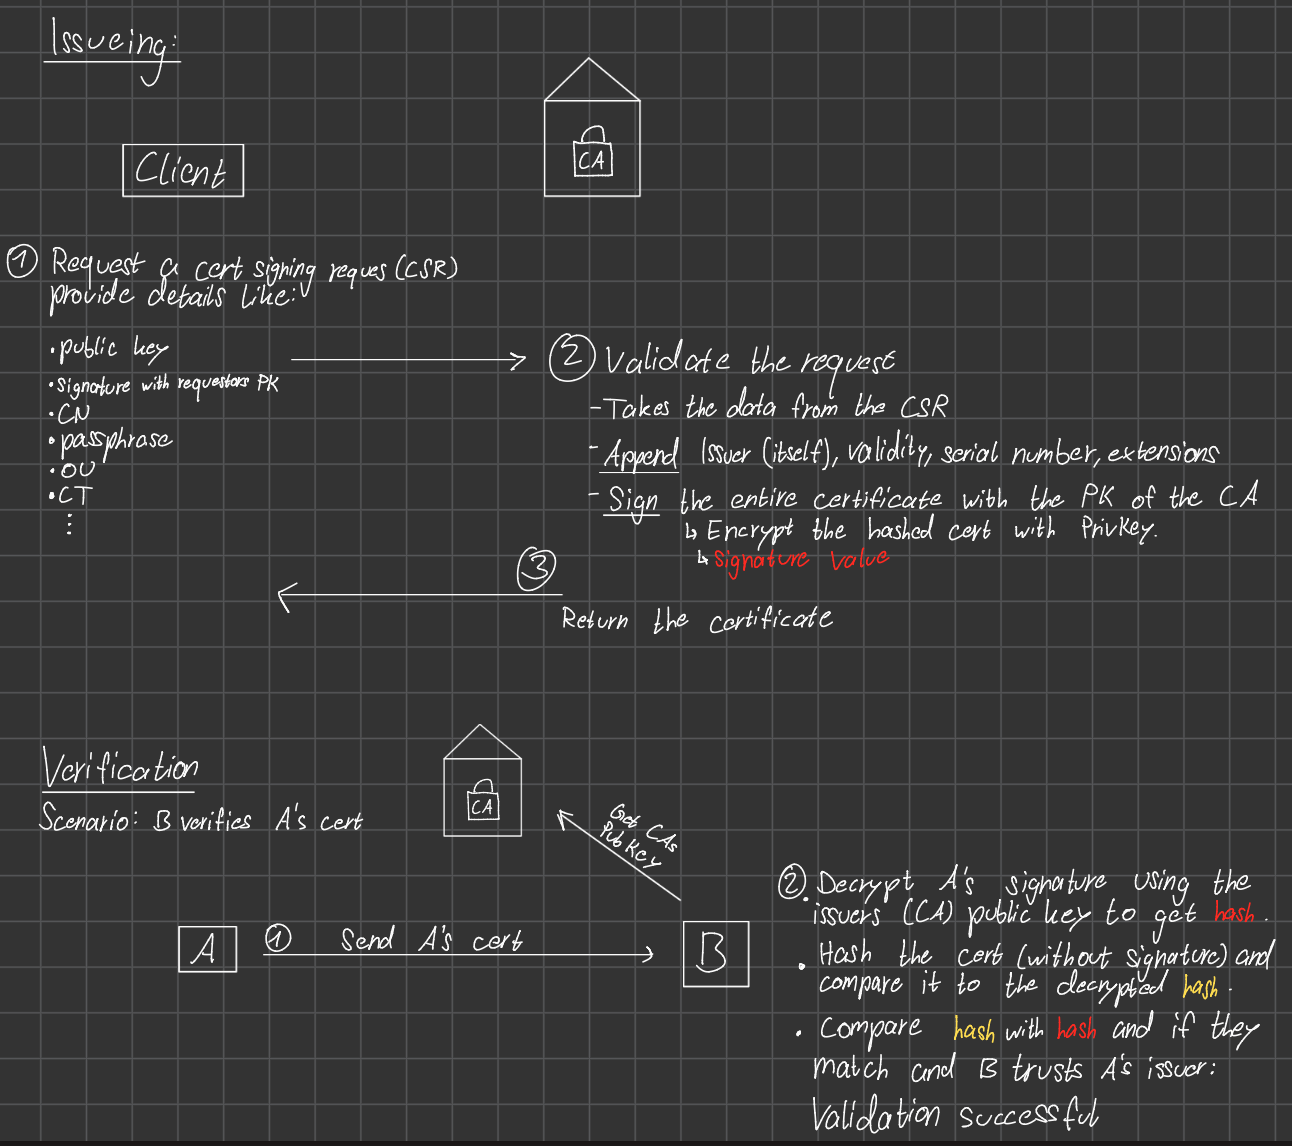 Issueing:
CA
Client
① Request a cert signing reques (CSR)
provide details like:
• public key
• Signature with requestors PK
• CN
• passphrase
• OU
• CT
⋮
② Validate the request
- Takes the data from the CSR
- Append Issuer (itself), validity, serial number, extensions
- Sign the entire certificate with the PK of the CA
↳ Encrypt the hashed cert with PrivKey.
↳ Signature value
③
Return the certificate
Verification
Scenario: B verifies A's cert
CA
Get CAs
PubKey
A
① Send A's cert
B
②
• Decrypt A's signature using the
issuers (CA) public key to get hash.
• Hash the cert (without signature) and
compare it to the decrypted hash.
• Compare hash with hash and if they
match and B trusts A's issuer:
Validation successful